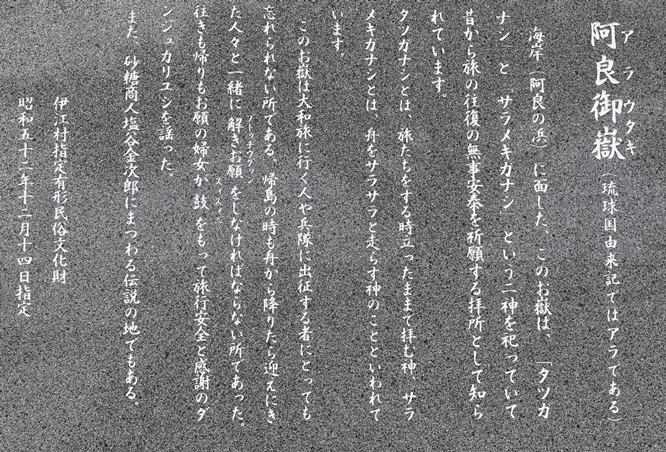 阿良御嶽(琉球国由来記ではアラである)
アラウタキ
海岸(阿良の浜)に面した、このお嶽は、「タツカ
ナシ」と「サラメキガナシ」という二神を祀っていて
昔から旅の往復の無事安泰を祈願する拝所として知ら
れています。
タツガナシとは、旅たちをする時立ったままで拝む神、サラ
メキガナシとは、舟をサラサラと走らす神のことといわれて
います。
このお嶽は大和旅に行く人や兵隊に出征する者にとっても
忘れられない所である。帰島の時も舟から降りたら迎えにき
た人々と一緒に解きお願をしなければならない所であった。
往きも帰りもお願の婦女が鼓をもって旅行安全と感謝のダ
ンジュカリユシを謡った。
また、砂糖商人塩谷金次郎にまつわる伝説の地でもある。
伊江村指定有形民俗文化財
昭和五十二年十二月十四日指定